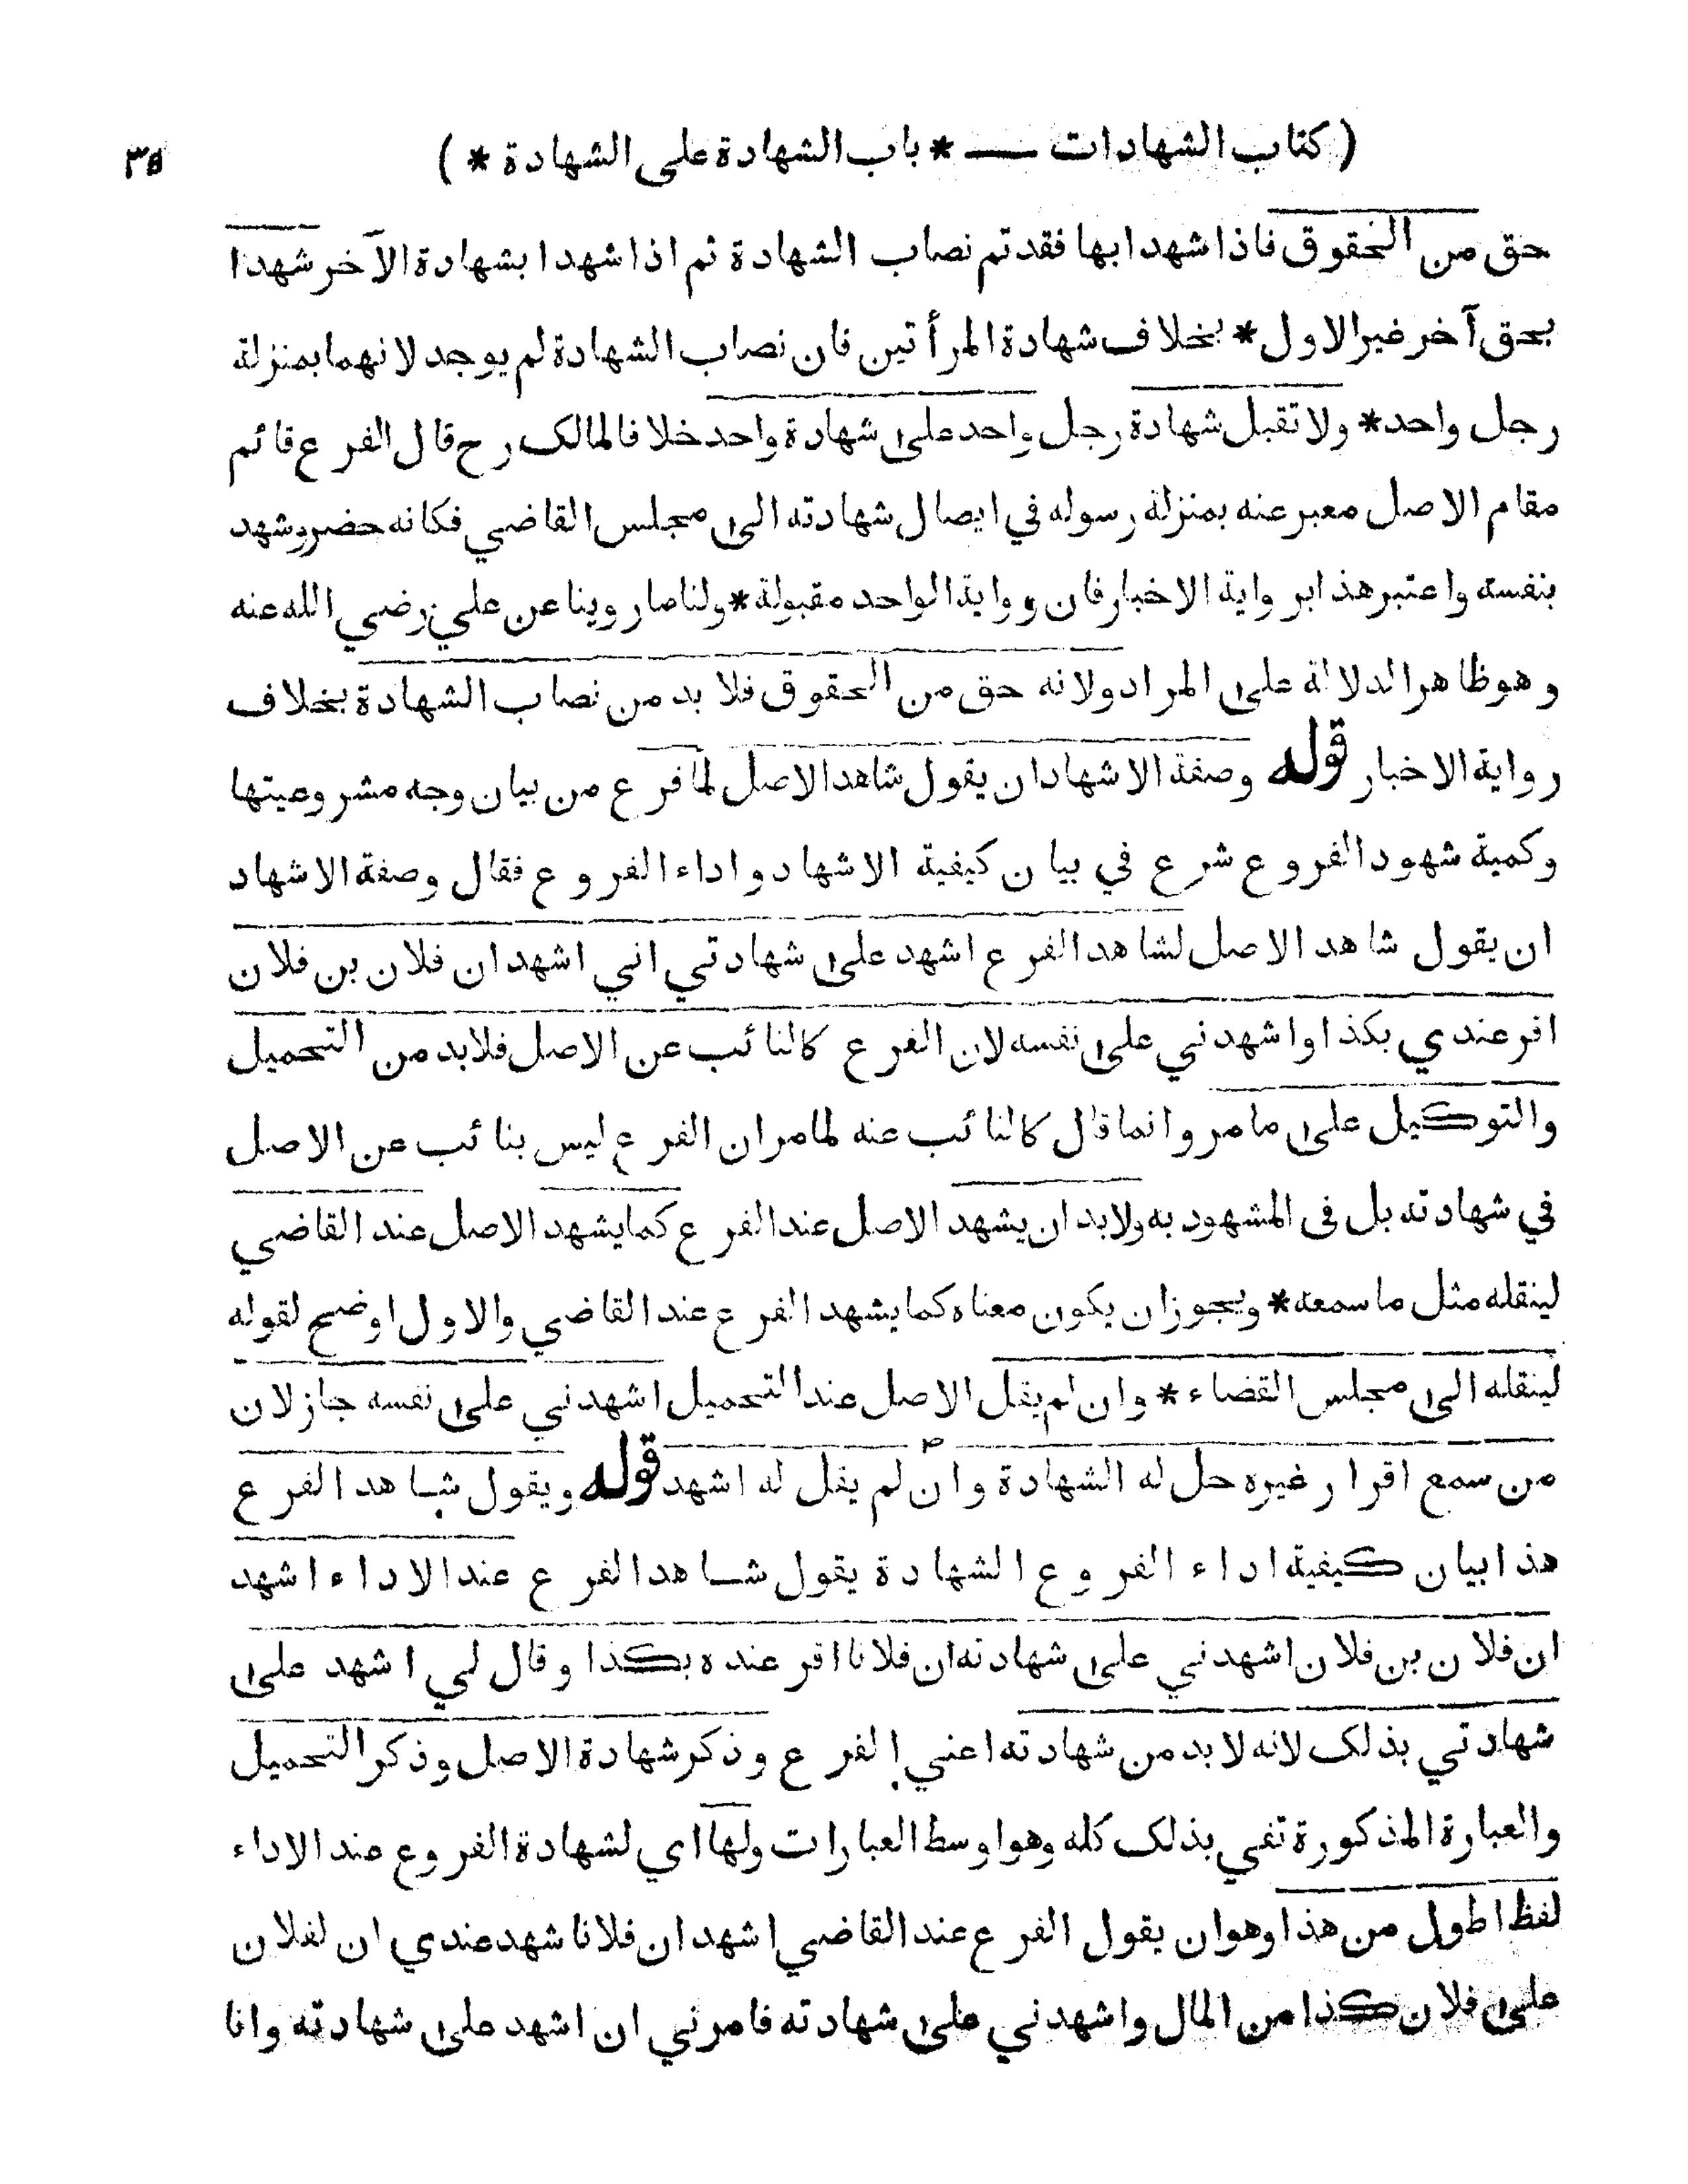 ( كتاب الشهادات — * باب الشهادة على الشهادة * ) ٣٥
حق من الحقوق فاذا شهدا بها فقد تم نصاب الشهادة ثم اذا شهدا بشهادة الآخر شهدا
بحق آخر غير الاول * بخلاف شهادة المرأتين فان نصاب الشهادة لم يوجد لانهما بمنزلة
رجل واحد * ولا تقبل شهادة رجل واحد على شهادة واحد خلافا لمالك رح قال الفرع قائم
مقام الاصل معبر عنه بمنزلة رسوله في ايصال شهادته الى مجلس القاضي فكانه حضر وشهد
بنفسه واعتبر هذا برواية الاخبار فان رواية الواحد مقبولة * ولنا ما روينا عن علي رضي الله عنه
وهو ظاهر الدلالة على المراد ولانه حق من الحقوق فلا بد من نصاب الشهادة بخلاف
رواية الاخبار قوله وصفة الاشهاد ان يقول شاهد الاصل لما فرع من بيان وجه مشروعيتها
وكمية شهود الفروع شرع في بيان كيفية الاشهاد واداء الفروع فقال وصفة الاشهاد
ان يقول شاهد الاصل لشاهد الفرع اشهد على شهادتي اني اشهد ان فلان بن فلان
اقر عندي بكذا واشهدني على نفسه لان الفرع كالنائب عن الاصل فلا بد من التحميل
والتوكيل على ما مر وانما قال كالنائب عنه لما مر ان الفرع ليس بنائب عن الاصل
في شهادته بل فى المشهود به ولا بد ان يشهد الاصل عند الفرع كما يشهد الاصل عند القاضي
لينقله مثل ما سمعه * ويجوز ان يكون معناه كما يشهد الفرع عند القاضي والاول اوضح لقوله
لينقله الى مجلس القضاء * وان لم يقل الاصل عند التحميل اشهدني على نفسه جاز لان
من سمع اقرار غيره حل له الشهادة وان لم يقل له اشهد قوله ويقول شاهد الفرع
هذا بيان كيفية اداء الفروع الشهادة يقول شاهد الفرع عند الاداء اشهد
ان فلان بن فلان اشهدني على شهادته ان فلانا اقر عنده بكذا وقال لي اشهد على
شهادتي بذلك لانه لا بد من شهادته اعني الفرع وذكر شهادة الاصل وذكر التحميل
والعبارة المذكورة تفي بذلك كله وهو اوسط العبارات ولها اي لشهادة الفروع عند الاداء
لفظ اطول من هذا وهو ان يقول الفرع عند القاضي اشهد ان فلانا شهد عندي ان لفلان
على فلان كذا من المال واشهدني على شهادته فامرني ان اشهد على شهادته وانا